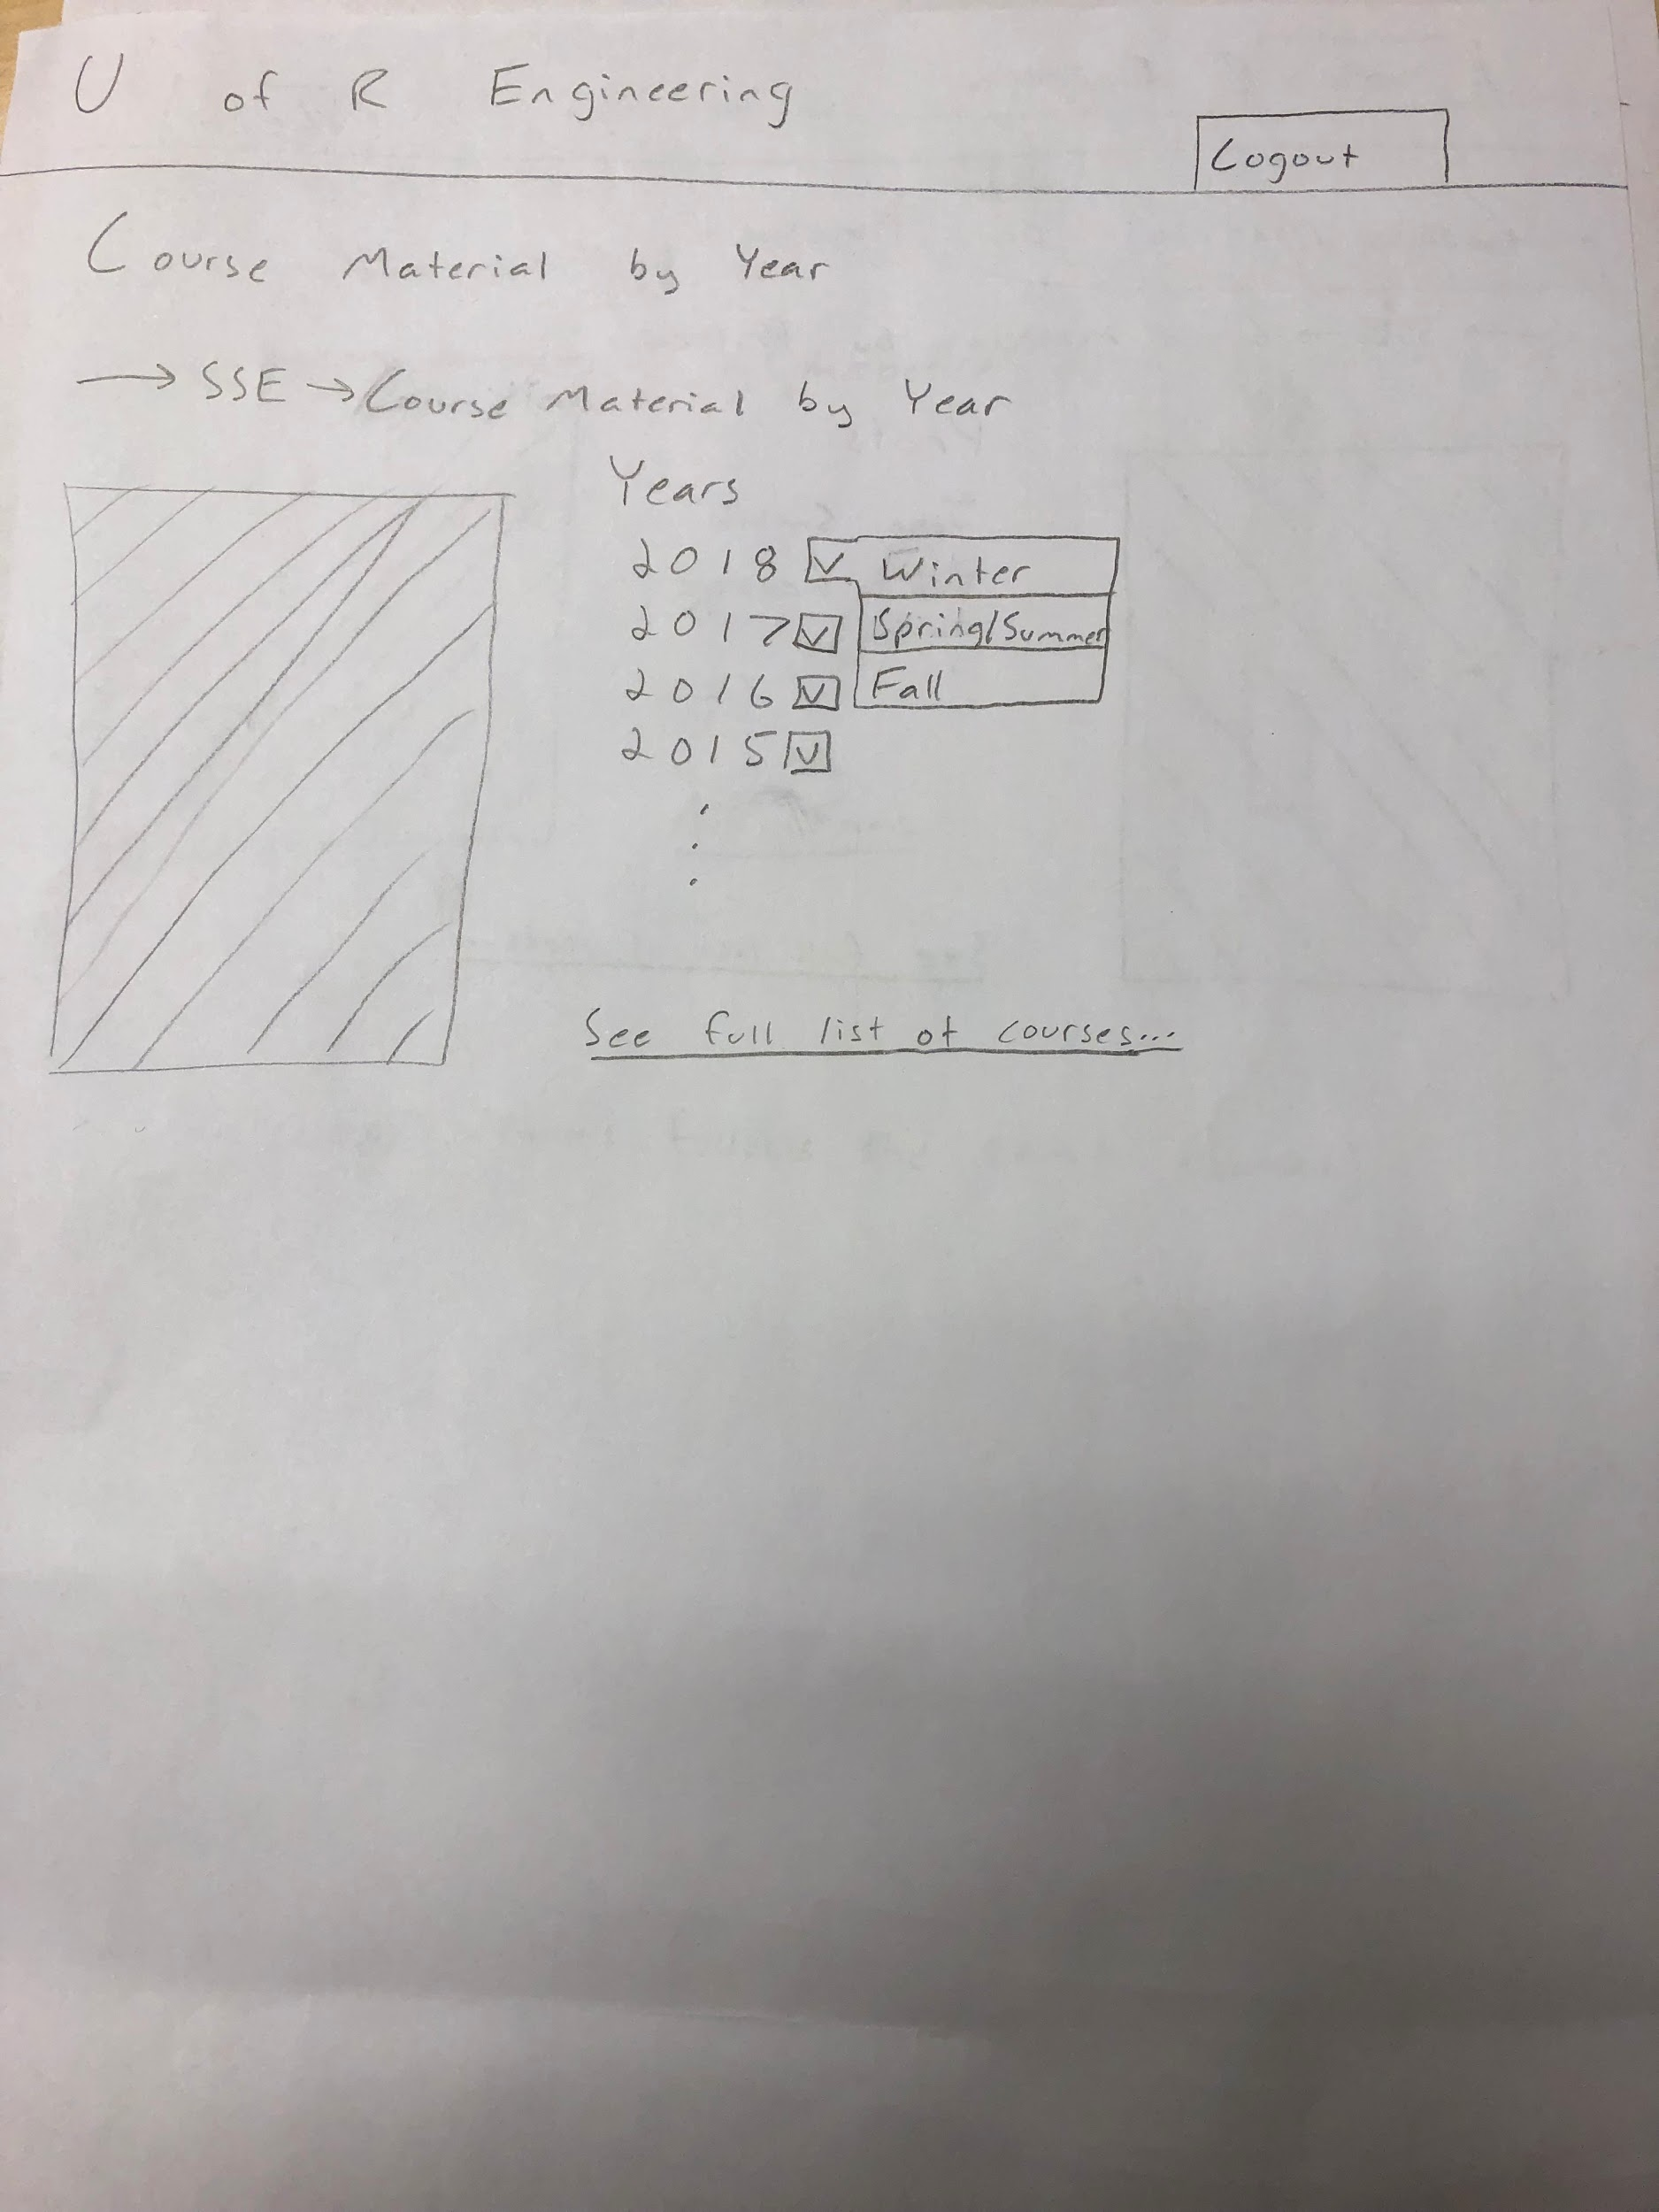 U of R Engineering
Logout
Course Material by Year
→ SSE → Course Material by Year
Years
2018 Winter
2017 Spring/Summer
2016 Fall
2015
See full list of courses...